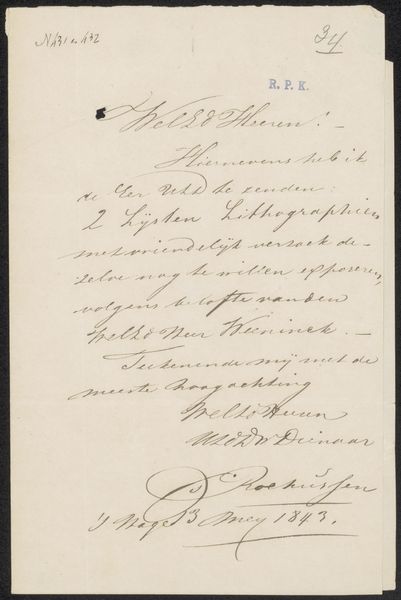 N 431 en 432
34
R. P. K.
WelEd Heeren! —
Hiernevens heb ik
de Eer UEd te zenden:
2 Lijsten Lithographien
met vriendelijk verzoek de-
zelve nog te willen exposeren,
volgens belofte van den
WelEd Heer —
Teekenende mij met de
meeste hoogachting
WelEd Heeren
UEdDW Dienaar
Rochussen
's Hage 3 Mey 1843.